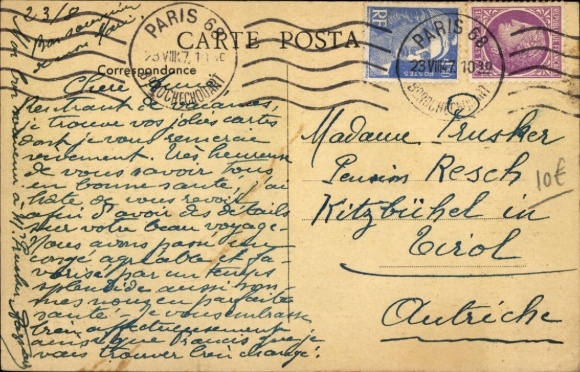 23/8
Bon souvenir
de mon mari.
CARTE POSTALE
Correspondance
PARIS 68
23 VIII 47 10 30
B. ROCHECHOUART
PARIS 68
23 VIII 47 10 30
B. ROCHECHOUART
RF
POSTES
Chère amie
Rentrant de vacances,
je trouve vos jolies cartes
dont je vous remercie
vivement. Très heureuse
de vous savoir tous
en bonne santé, j'ai
hâte de vous revoir
afin d'avoir des détails
sur votre beau voyage.
Nous avons passé un
congé agréable et fa-
vorisé par un temps
splendide aussi som-
mes nous en parfaite
santé. Je vous embrasse
bien affectueusement
ainsi que Francis que je
vais trouver bien changé.
Madame Prusker
Pension Resch
Kitzbühel in
Tirol
Autriche
10€